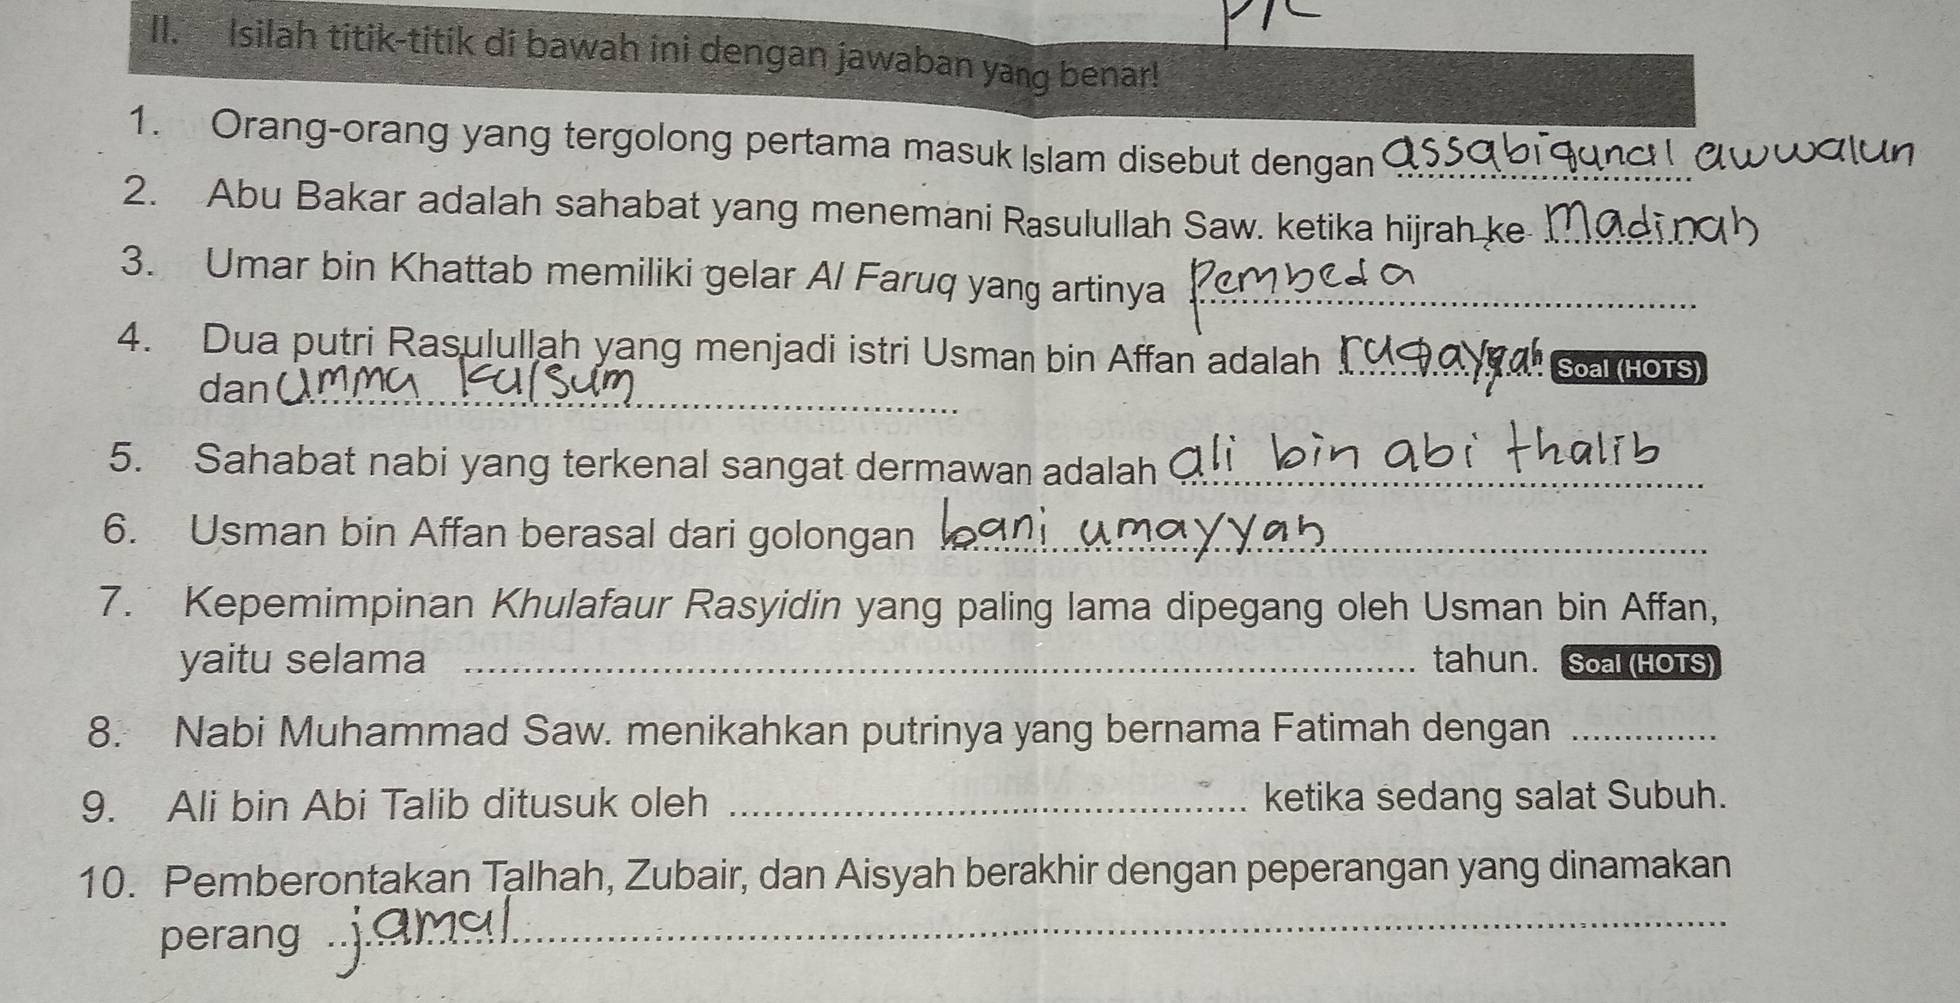 II. Isilah titik-titik di bawah ini dengan jawaban yang benar!
1. Orang-orang yang tergolong pertama masuk Islam disebut dengan assabiqunal awwalun
2. Abu Bakar adalah sahabat yang menemani Rasulullah Saw. ketika hijrah ke Madinah
3. Umar bin Khattab memiliki gelar Al Faruq yang artinya Pembeda
4. Dua putri Rasulullah yang menjadi istri Usman bin Affan adalah ruqayyah Soal (HOTS)
dan ummu kulsum
5. Sahabat nabi yang terkenal sangat dermawan adalah ali bin abi thalib
6. Usman bin Affan berasal dari golongan bani umayyah
7. Kepemimpinan Khulafaur Rasyidin yang paling lama dipegang oleh Usman bin Affan,
yaitu selama ........ tahun. Soal (HOTS)
8. Nabi Muhammad Saw. menikahkan putrinya yang bernama Fatimah dengan ........
9. Ali bin Abi Talib ditusuk oleh ........ ketika sedang salat Subuh.
10. Pemberontakan Talhah, Zubair, dan Aisyah berakhir dengan peperangan yang dinamakan
perang jamal